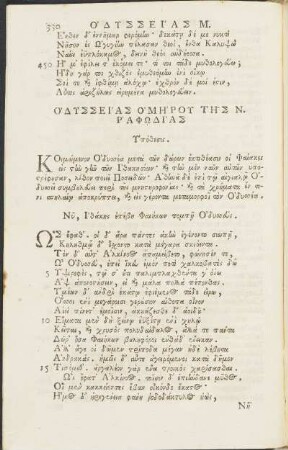 330 ὈΔΥΣΣΕΊΑΣ Μ.
Ἔνθεν δ' ἐννῆμαρ φερόμην· δεκάτῃ δέ με νυκτὶ
Νῆσον ἐς Ὠγυγίην πέλασαν θεοὶ, ἔνθα Καλυψὼ
Ναίει ἐϋπλόκαμος, δεινὴ θεὸς αὐδήεσσα.
450 Ἥ μ' ἐφίλει τ' ἐκόμει τ'· τί τοι τάδε μυθολογεύω;
Ἤδη γάρ τοι χθιζὸς ἐμυθεόμην ἐνὶ οἴκῳ
Σοί τε καὶ ἰφθίμῃ ἀλόχῳ· ἐχθρὸν δέ μοί ἐστιν,
Αὖθις ἀριζήλως εἰρημένα μυθολογεύειν.
ὈΔΥΣΣΕΊΑΣ ὉΜΉΡΟΥ ΤΗ͂Σ Ν.
ῬΑΨΩΔΊΑΣ
Ὑπόθεσις.
Κοιμώμενον Ὀδυσσέα μετὰ τῶν δώρων ἐκτιθέασιν οἱ Φαίακες
εἰς τὴν γῆν τῶν Ἰθακησίων· καὶ τὴν μὲν ναῦν αὐτῶν ὑπο-
στρέφουσαν, λίθον ποιεῖ Ποσειδῶν· Ἀθηνᾶ δὲ ἐπὶ τῷ αἰγιαλῷ Ὀδυσ-
σεῖ συμβουλεύει περὶ τῆς μνηστηροφονίας· καὶ τὰ χρήματα ἔν τι-
νι σπηλαίῳ ἀποκρύπτει, καὶ ὡς γέροντα μεταμορφοῖ τὸν Ὀδυσσέα.
Νῦ, Ἰθάκης ἐπέβη Φαιήκων πομπῇ Ὀδυσσεύς.
ὪΣ ἔφαθ'· οἱ δ' ἄρα πάντες ἀκὴν ἐγένοντο σιωπῇ,
Κηληθμῷ δ' ἔσχοντο κατὰ μέγαρα σκιόεντα.
Τὸν δ' αὖτ' Ἀλκίνοος ἀπαμείβετο, φώνησέν τε,
Ὦ Ὀδυσεῦ, ἐπεὶ ἵκευ ἐμὸν ποτὶ χαλκοβατὲς δῶ
5 Ὑψερεφὲς, τῷ σ' οὔ τι παλιμπλαγχθέντα γ' ὀΐω
Ἂψ ἀπονοστήσειν, εἰ καὶ μάλα πολλὰ πέπονθας.
Ὑμέων δ' ἀνδρὶ ἑκάστῳ ἐφιέμενος τάδε εἴρω,
Ὅσσοι ἐνὶ μεγάροισι γερούσιον αἴθοπα οἶνον
Αἰεὶ πίνετ' ἐμοῖσιν, ἀκουάζεσθε δ' ἀοιδοῦ·
10 Εἵματα μὲν δὴ ξείνῳ ἐϋξέστῃ ἐνὶ χηλῷ
Κεῖται, καὶ χρυσὸς πολυδαίδαλος, ἄλλα τε πάντα
Δῶρ' ὅσα Φαιήκων βουληφόροι ἐνθάδ' ἔνεικαν.
Ἀλλ' ἄγε οἱ δῶμεν τρίποδα μέγαν ἠδὲ λέβητα
Ἀνδρακάς, ἡμεῖς δ' αὖτε ἀγειρόμενοι κατὰ δῆμον
15 Τισόμεθ'. ἀργαλέον γὰρ ἕνα προικὸς χαρίσασθαι.
Ὣς ἔφατ' Ἀλκίνοος, τοῖσιν δ' ἐπιήνδανε μῦθος,
Οἱ μὲν κακκείοντες ἔβαν οἶκόνδε ἕκαστος·
Ἦμος δ' ἠριγένεια φάνη ῥοδοδάκτυλος ἠώς,
Νῆ